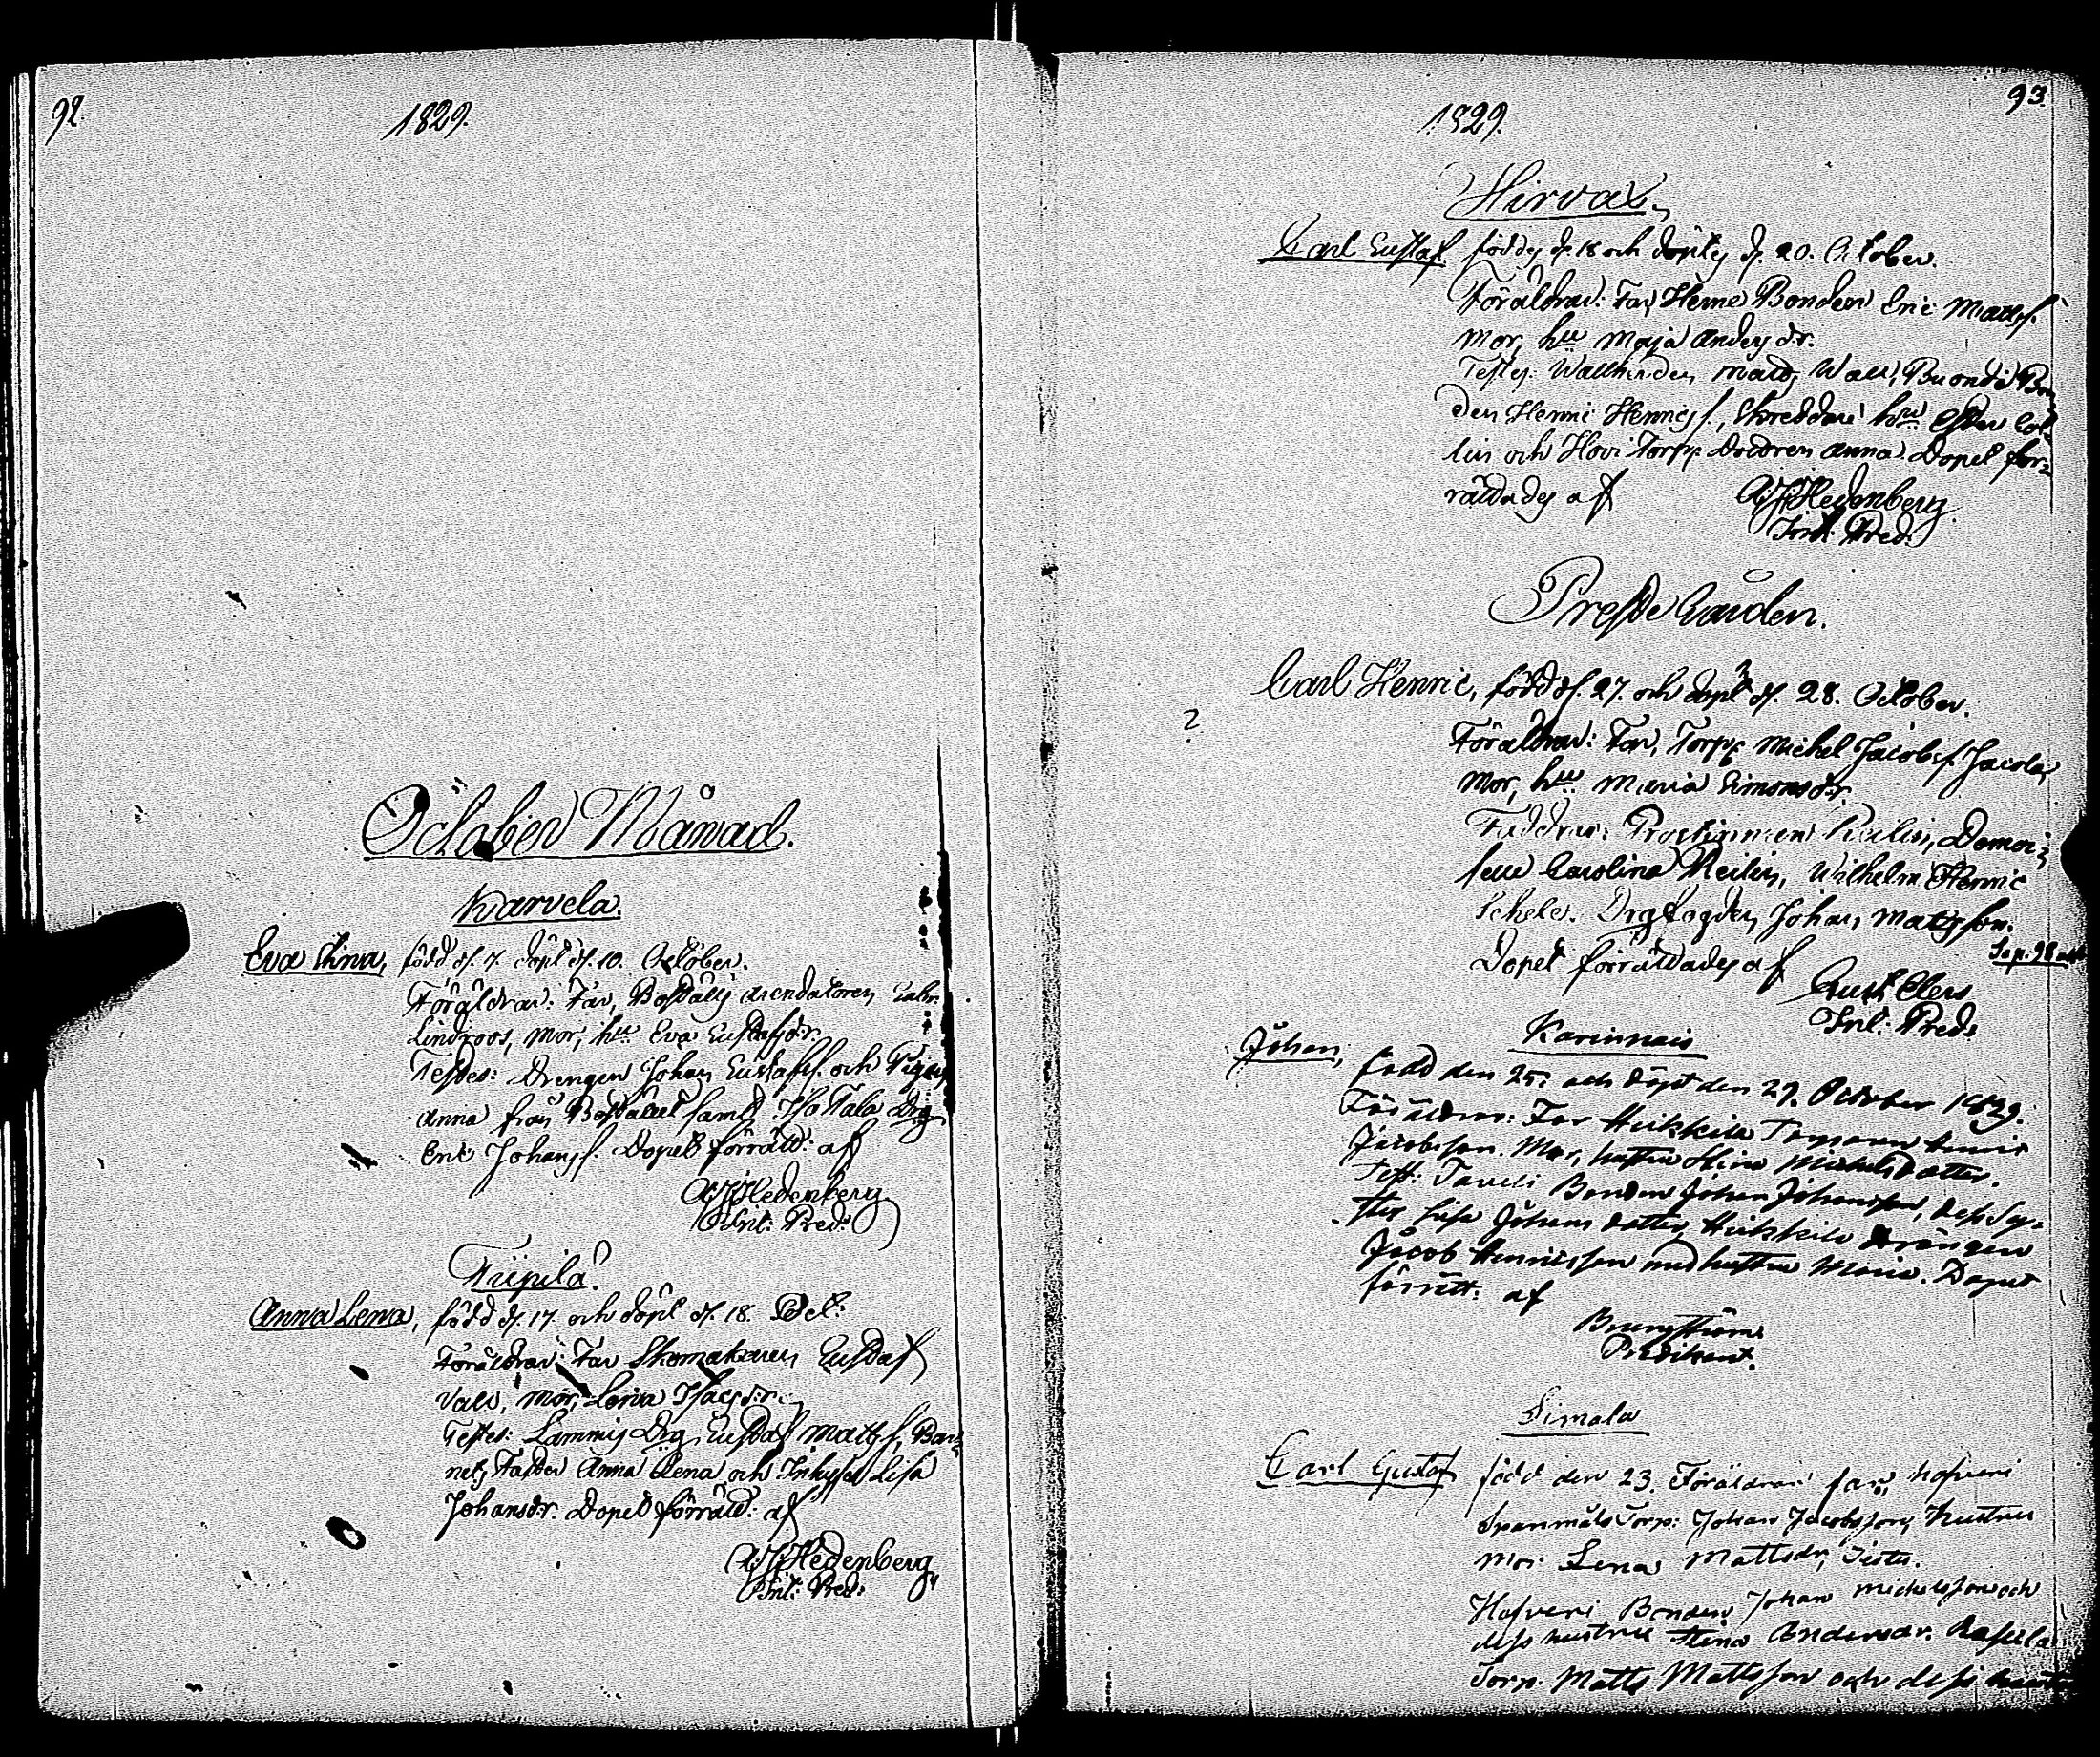 92.
1829.
October Månad.
Karvela.
Eva Stina, född d. 7. döpt d. 10. October.
Föräldrar: Far, Boställs arendatoren Gabr.
Lindroos, Mor, hu Eva Gustafsdr.
Testes: Drengen Johan Gustafss. och Pigan
Anna från Bostället samt Isotalo Drg
Eric Johanss. Dopet förrätt: af
Hedenberg
Pred:
född d. 17. och döpt d. 18. Oct:
Anna Lena,
Föräldrar: Far Skomakaren Gustaf
Mor, Lena Isacsdr.
Testes: Lammis Drg Gustaf Matts. Bar-
nets Faster Anna Lena och Inhyses Lisa
Johansdr. Dopet förrätt: af
Hedenberg
Pred:
93.
1829.
Hirvax.
Carl Gustaf, föddes d. 18 och döptes d. 20. October.
Föräldrar: Far, Heme Bonden Eric Matss.
Mor, hu Maja Andersdr.
Testes: Mats Bonde
den Henric Henricss., Skreddare hu
och Hovi Torpp. Dottren Anna. Dopet för-
rättades af Hedenberg
Pred:
PresteGården.
Carl Henric, född d. 27. och döpt d. 28. October.
?
Föräldrar: Far, Torpp. Michel Jacobss.
Mor, hu Maria Simonsdr.
Faddrar: Prostinnan Demoi-
selle Carolina Wilhelm Henric
Schele. Drg Fogden Johan Matsson.
Dopet förrättades af
Gust.
Pred:
Karinnais
Johan, född den 25. och döpt den 27. October 1829.
Föräldrar: Far
Jacobsson. Mor, hustru Stina Michelsdotter.
Test: Taveli Bonden Johan Johansson, dess Sy-
ster Lisa Johans dotter, Drängen
Jacob Henricsson med hustru Maria. Dopet
förrätt: af
Predikant.
Simala
Carl Gustaf född den 23. Föräldrar far, Hofveri
Torp: Johan Jacobsson, hustru
Mor Lena Mattsdr, Testes.
Hofveri Bonden Johan Michelsson och
dess hustru Stina Andersdr.
Torp. Matts Mattsson och dess